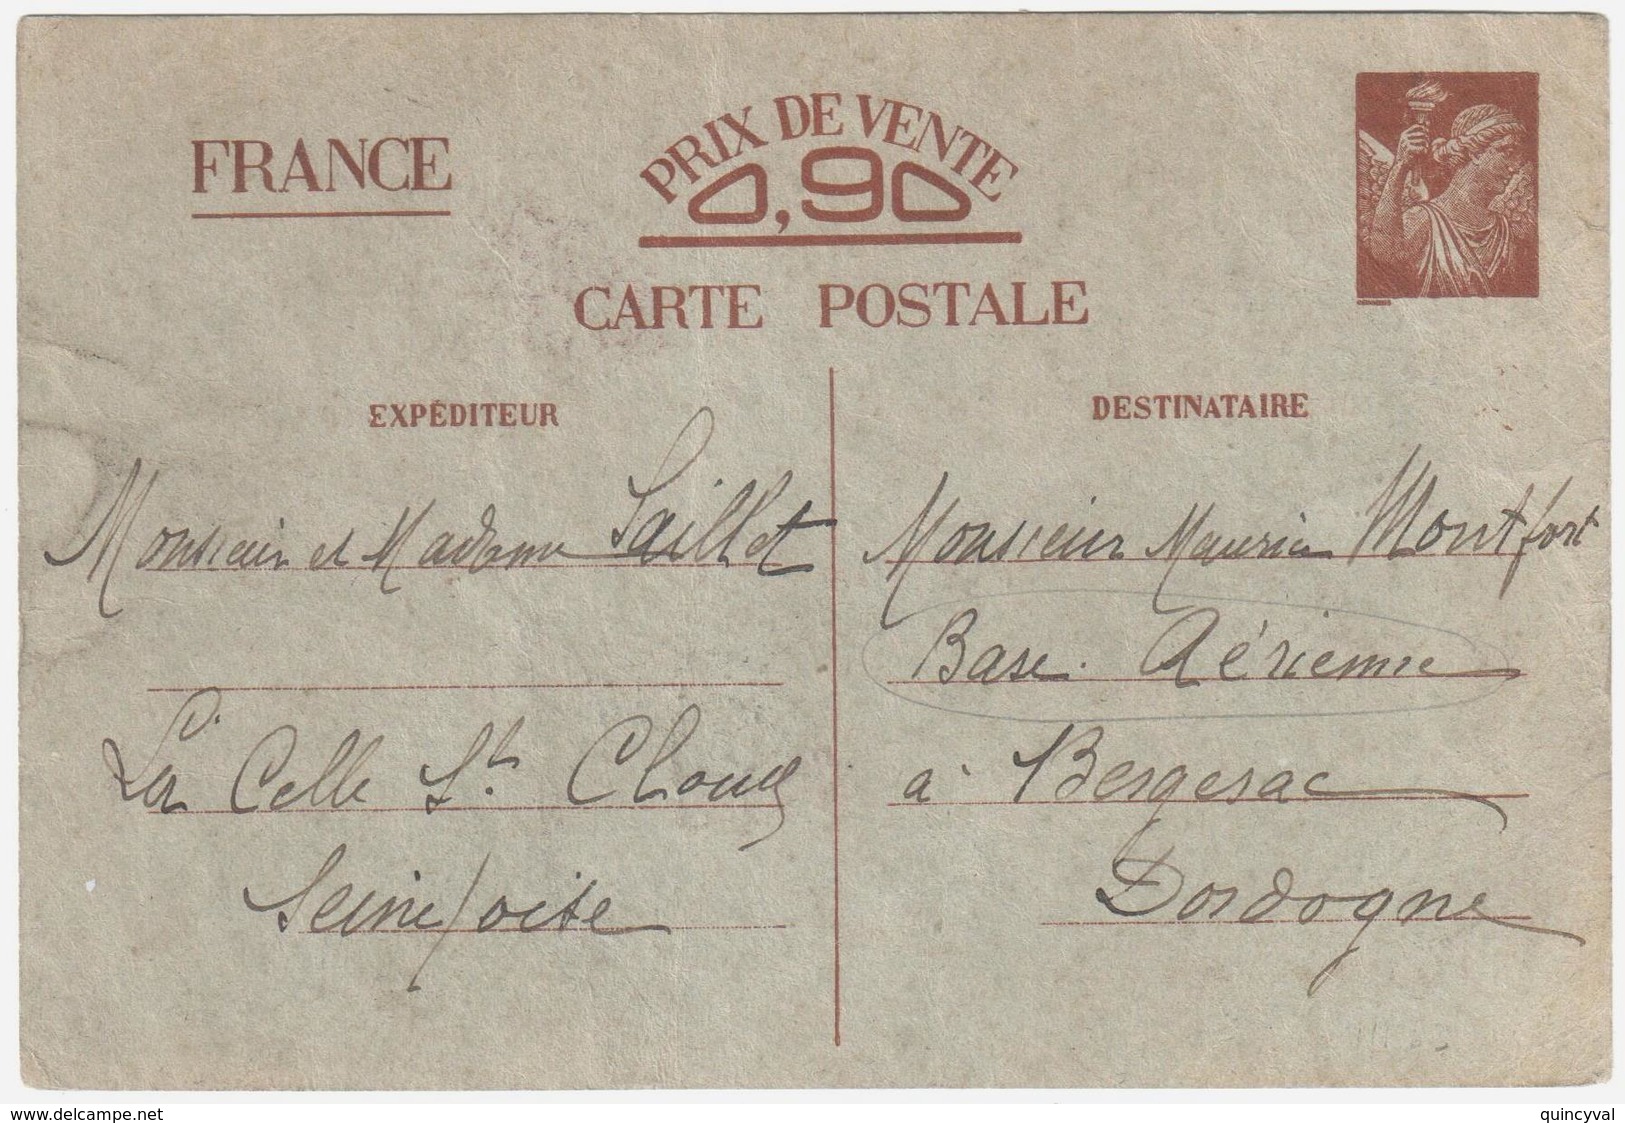 FRANCE
PRIX DE VENTE
0,90
CARTE POSTALE
EXPÉDITEUR
Monsieur et Madame Saillet
La Celle St. Cloud
Seine/oise
DESTINATAIRE
Monsieur Maurice Montfort
Base Aérienne
à Bergerac
Dordogne
www.delcampe.net
quincyval